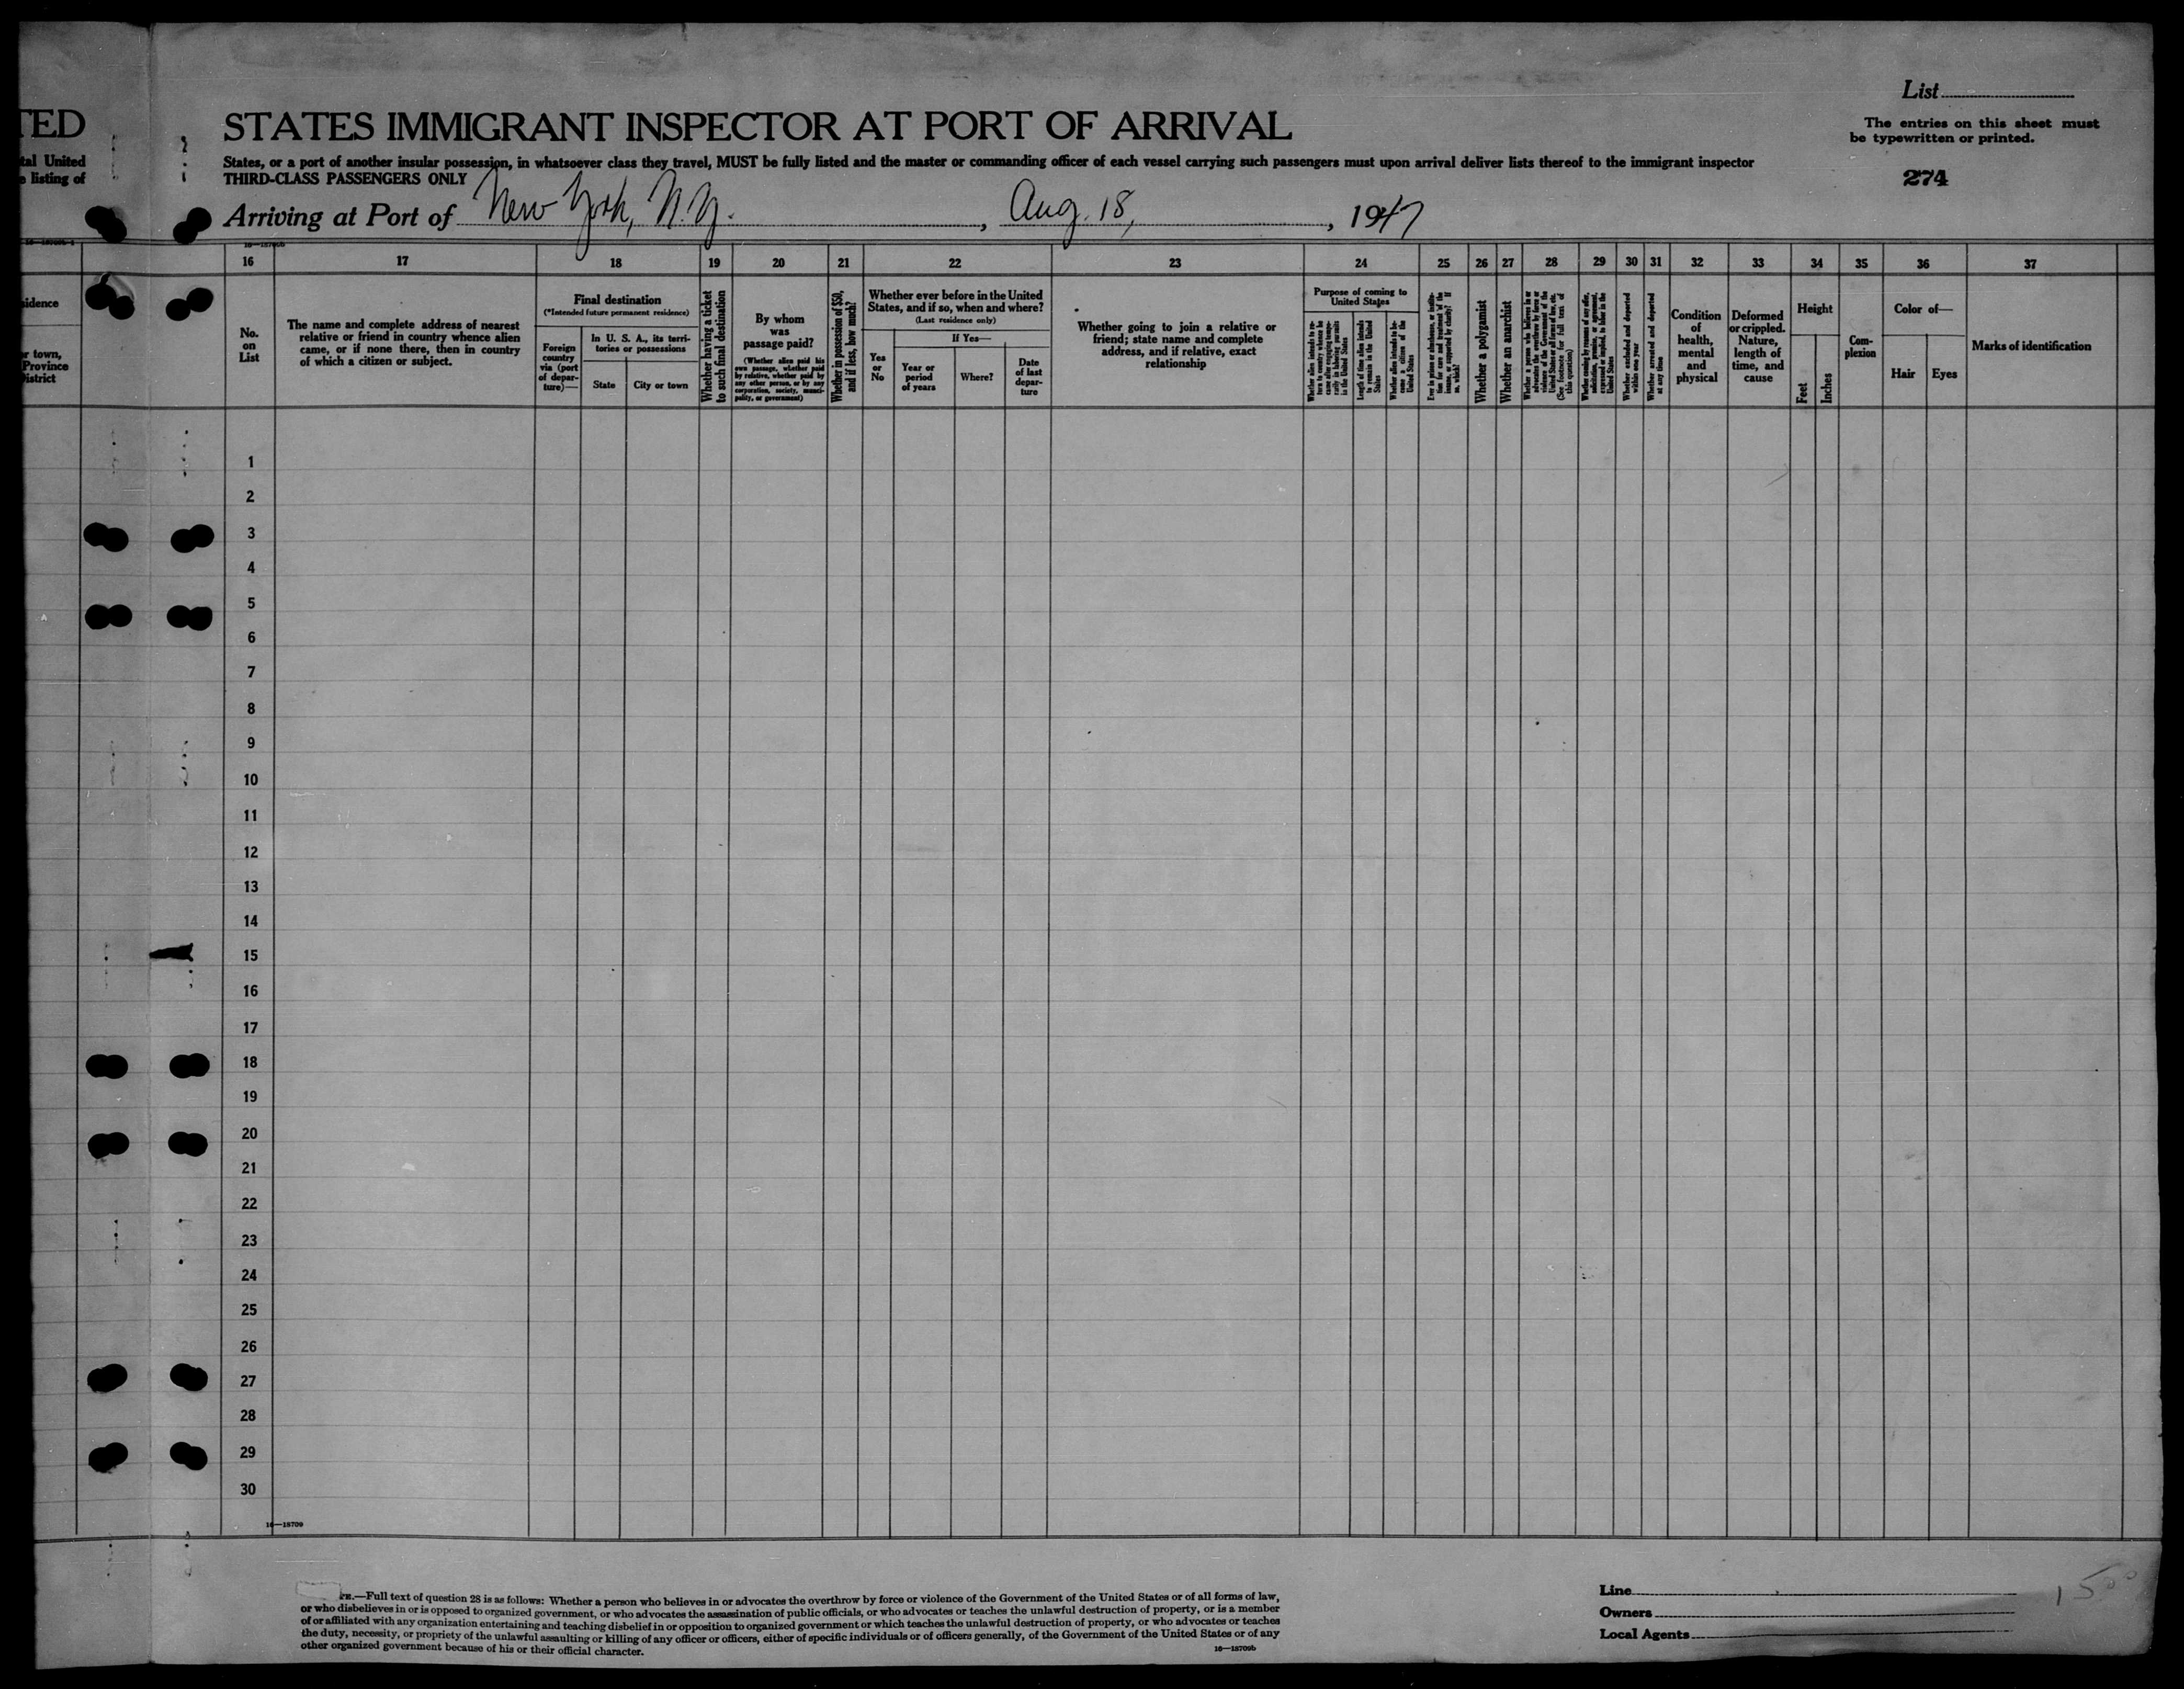 TED
tal United
listing of
List
STATES IMMIGRANT INSPECTOR AT PORT OF ARRIVAL
The entries on this sheet must
be typewritten or printed.
States, or a port of another insular possession, in whatsoever class they travel, MUST be fully listed and the master or commanding officer of each vessel carrying such passengers must upon arrival deliver lists thereof to the immigrant inspector
THIRD-CLASS PASSENGERS ONLY
274
Arriving at Port of New York, N.Y., Aug. 18, 1947
16 17 18 19 20 21 22 23 24 25 26 27 28 29 30 31 32 33 34 35 36 37
idence
town,
Province
istrict
No.
on
List
The name and complete address of nearest
relative or friend in country whence alien
came, or if none there, then in country
of which a citizen or subject.
Final destination
(*Intended future permanent residence)
Foreign
country
via (port
of depar-
ture)—
In U. S. A., its terri-
tories or possessions
State
City or town
Whether having a ticket
to such final destination
By whom
was
passage paid?
(Whether alien paid his
own passage, whether paid
by relative, whether paid by
any other person, or by any
corporation, society, munici-
pality, or government)
Whether in possession of $50,
and if less, how much?
Whether ever before in the United
States, and if so, when and where?
(Last residence only)
Yes
or
No
If Yes—
Year or
period
of years
Where?
Date
of last
depar-
ture
Whether going to join a relative or
friend; state name and complete
address, and if relative, exact
relationship
Purpose of coming to
United States
Whether alien intends to re-
turn to country whence he
came after engaging tempo-
rarily in laboring pursuits
in the United States
Length of time alien intends
to remain in the United
States
Whether alien intends to be-
come a citizen of the
United States
Ever in prison or almshouse, or institu-
tion for care and treatment of the
insane, or supported by charity? If
so, which?
Whether a polygamist
Whether an anarchist
Whether a person who believes in or
advocates the overthrow by force or
violence of the Government of the
United States or all forms of law, etc.
(See footnote for full text of
this question)
Whether coming by reason of any offer,
solicitation, promise, or agreement,
expressed or implied, to labor in the
United States
Whether excluded and deported
within one year
Whether arrested and deported
at any time
Condition
of
health,
mental
and
physical
Deformed
or crippled.
Nature,
length of
time, and
cause
Height
Feet
Inches
Com-
plexion
Color of—
Hair
Eyes
Marks of identification
1
2
3
4
5
6
7
8
9
10
11
12
13
14
15
16
17
18
19
20
21
22
23
24
25
26
27
28
29
30
16—18709
—Full text of question 28 is as follows: Whether a person who believes in or advocates the overthrow by force or violence of the Government of the United States or of all forms of law,
or who disbelieves in or is opposed to organized government, or who advocates the assassination of public officials, or who advocates or teaches the unlawful destruction of property, or is a member
of or affiliated with any organization entertaining and teaching disbelief in or opposition to organized government or which teaches the unlawful destruction of property, or who advocates or teaches
the duty, necessity, or propriety of the unlawful assaulting or killing of any officer or officers, either of specific individuals or of officers generally, of the Government of the United States or of any
other organized government because of his or their official character.
16—18709b
Line
Owners
Local Agents
1500